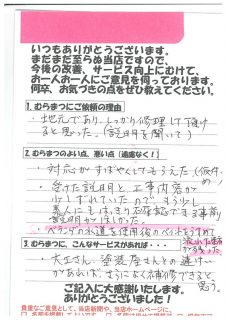 いつもありがとうございます。
まだまだ至らぬ当店ですので、
今後の改善、サービス向上にむけて、
お一人お一人にご意見を伺っております。
何卒、お気づきの点をぜひ教えてください。
1. むらまつにご依頼の理由
・地元であり、しっかり修理して頂け
ると思った。(説明を聞いて)
2. むらまつのよい点、悪い点(遠慮なく!)
・対応がすばやくしてもらえた(仮
・受けた説明と、工事内容が
少しずれていたので、もう少し
素人にもはっきり
説明がほしかった。
・ベランダの水道を使用後の
3. むらまつに、こんなサービスがあれば・・・
・大工さん、塗装屋さんとの
があれば、さらによく補修できると
思う。
ご記入に大感謝いたします。
ありがとうございました!
貴重なご意見として、当店新聞や、当店ホームページに、